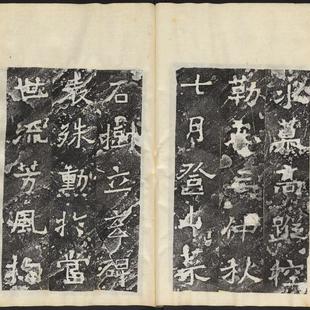 慕高蹤
勒仲秋
七月登山采
石樹立碑
表殊勳於當
世流芳風於